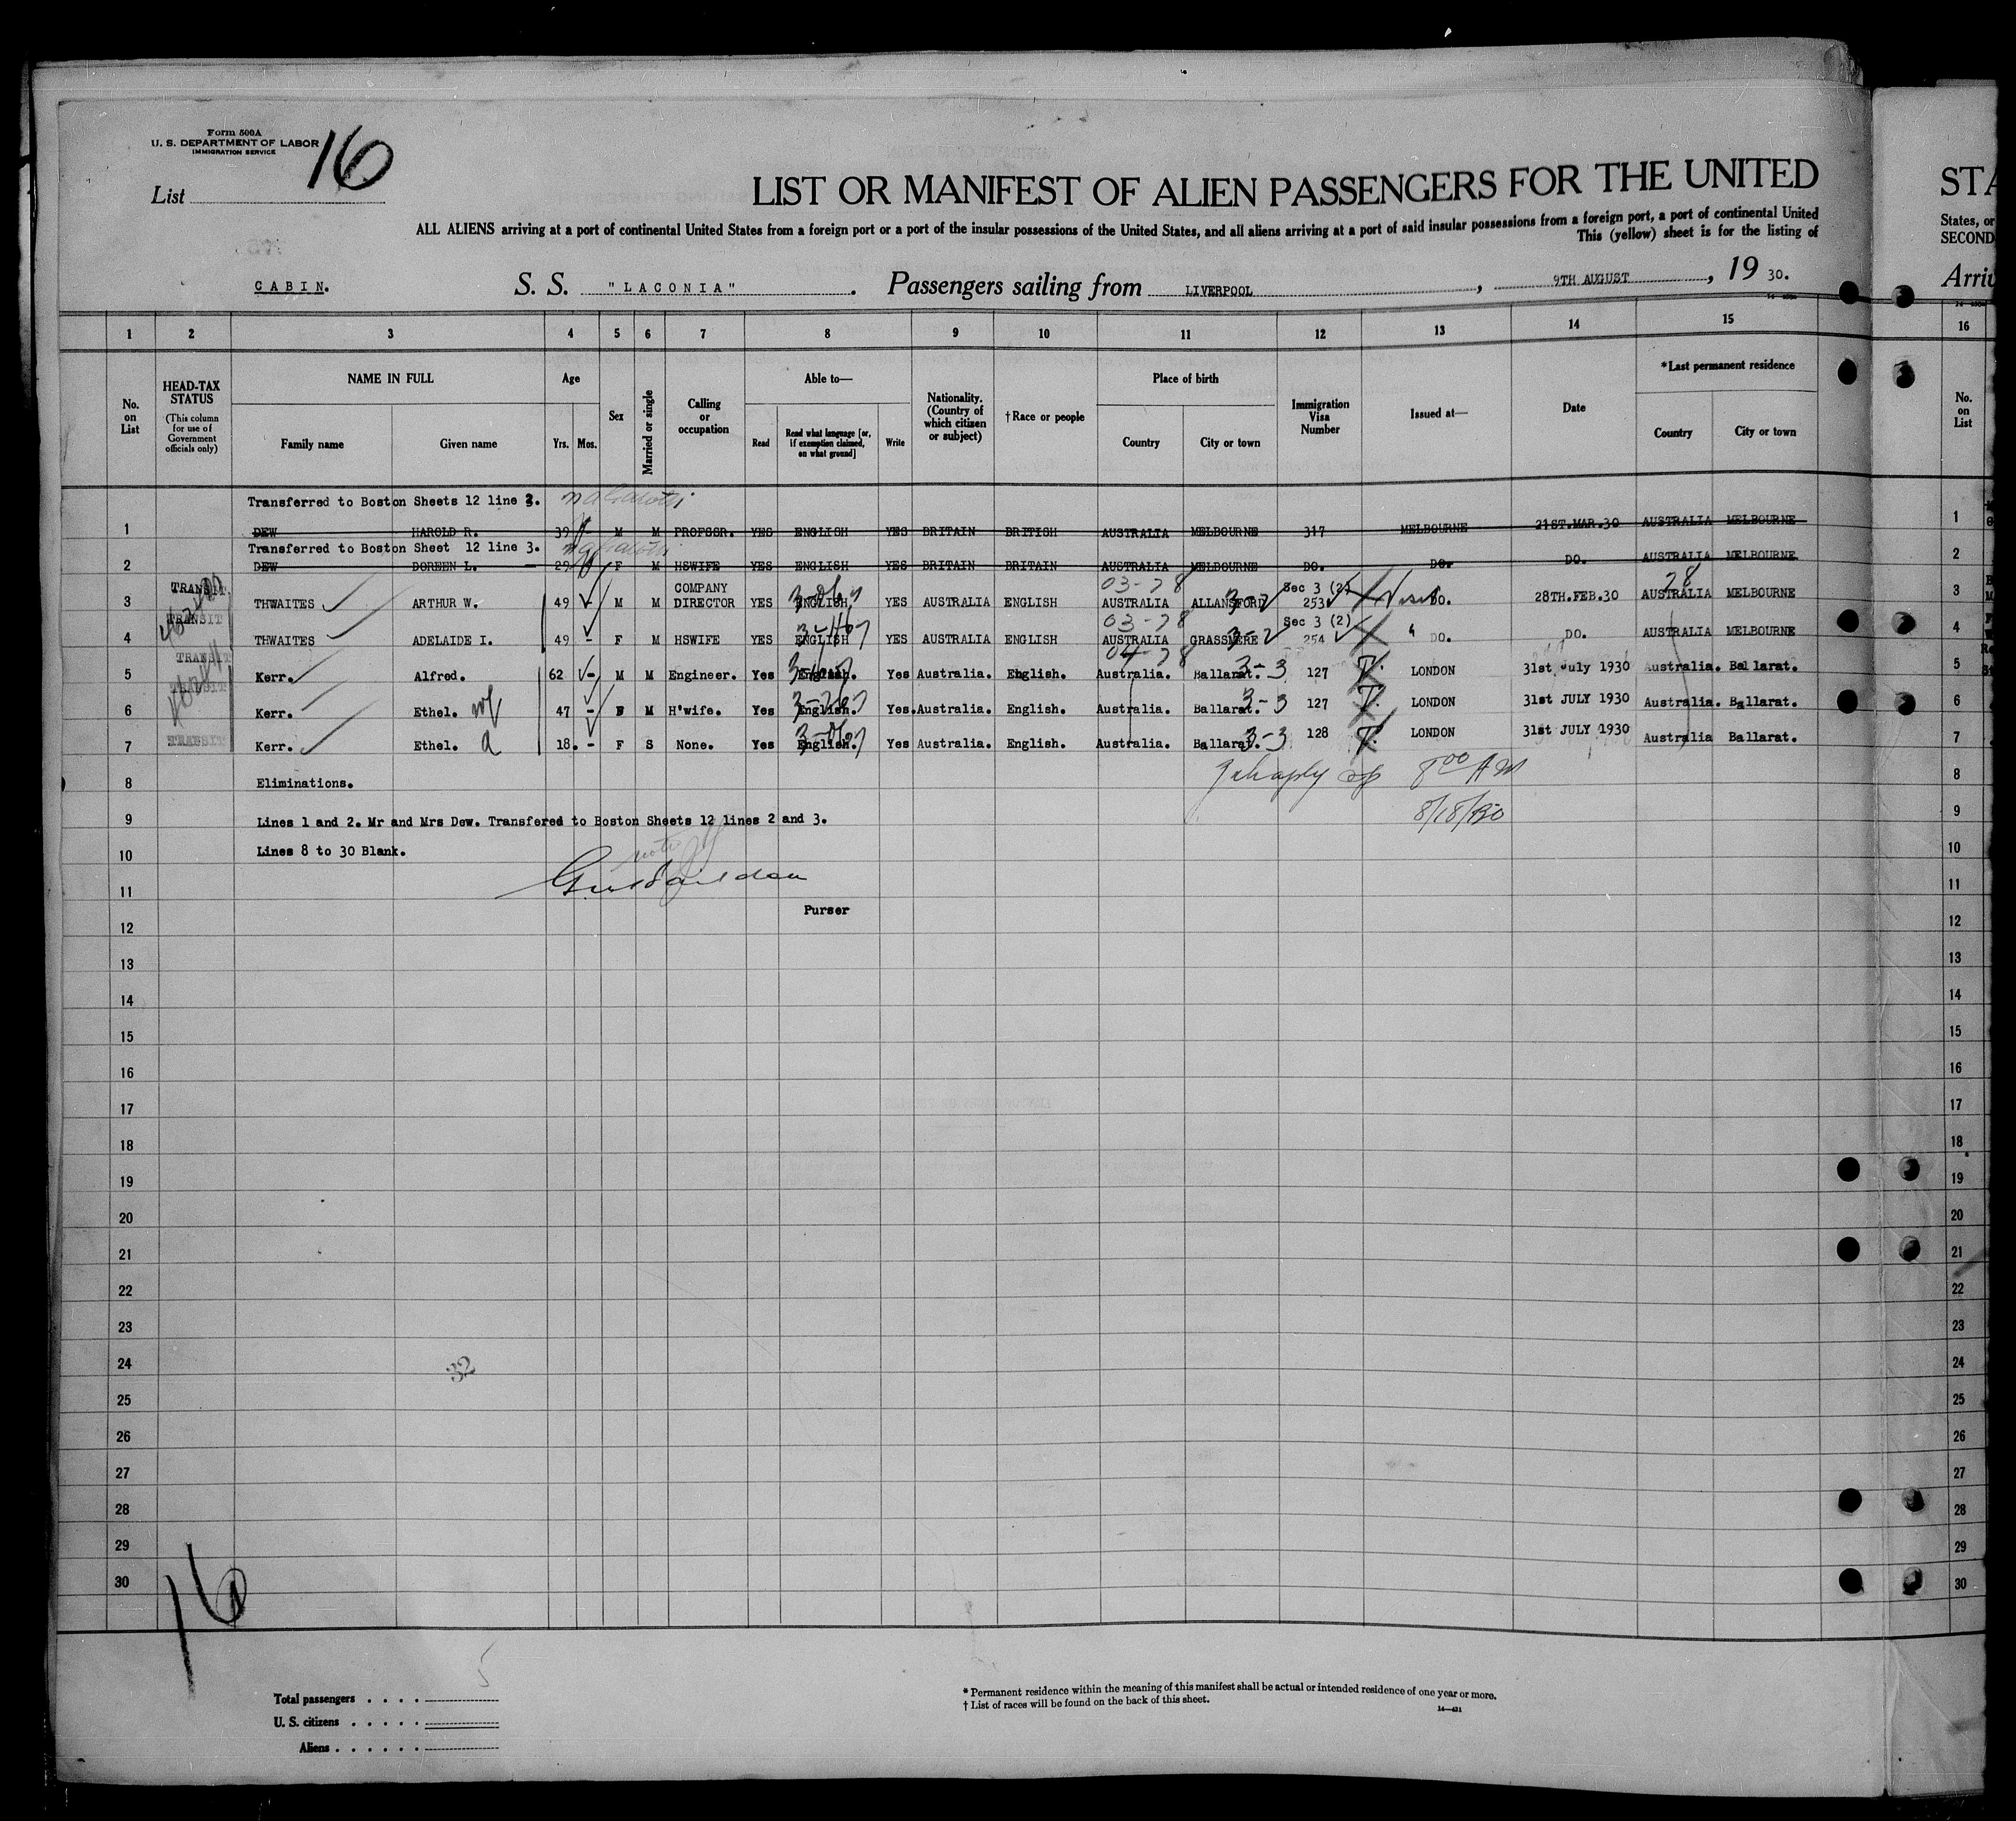 Form 500A
U. S. DEPARTMENT OF LABOR
IMMIGRATION SERVICE
16
List
LIST OR MANIFEST OF ALIEN PASSENGERS FOR THE UNITED
STA
ALL ALIENS arriving at a port of continental United States from a foreign port or a port of the insular possessions of the United States, and all aliens arriving at a port of said insular possessions from a foreign port, a port of continental United
States, or
This (yellow) sheet is for the listing of
SECOND
CABIN. S. S. "LACONIA". Passengers sailing from LIVERPOOL, 9TH AUGUST, 19 30.
Arriv
1 2 3 4 5 6 7 8 9 10 11 12 13 14 15 16
No. on List
HEAD-TAX STATUS
(This column for use of Government officials only)
NAME IN FULL
Family name Given name
Age
Yrs. Mos.
Sex
Married or single
Calling or occupation
Able to—
Read Read what language [or, if exemption claimed, on what ground] Write
Nationality. (Country of which citizen or subject)
†Race or people
Place of birth
Country City or town
Immigration Visa Number
Issued at—
Date
*Last permanent residence
Country City or town
No. on List
Transferred to Boston Sheets 12 line 2.
1 DEW HAROLD R. 39 M M PROFSSR. YES ENGLISH YES BRITAIN BRITISH AUSTRALIA MELBOURNE 317 MELBOURNE 21ST.MAR.30 AUSTRALIA MELBOURNE 1
Transferred to Boston Sheet 12 line 3.
2 DEW DOREEN L. 29 F M HSWIFE YES ENGLISH YES BRITAIN BRITAIN AUSTRALIA MELBOURNE DO. DO. DO. AUSTRALIA MELBOURNE 2
TRANSIT COMPANY 03-78 Sec 3 (2) 28
3 THWAITES ARTHUR W. 49 - M M DIRECTOR YES ENGLISH. YES AUSTRALIA ENGLISH AUSTRALIA ALLANSFORD 253 Visit DO. 28TH.FEB.30 AUSTRALIA MELBOURNE 3
TRANSIT 03-78 Sec 3 (2)
4 THWAITES ADELAIDE I. 49 - F M HSWIFE YES ENGLISH YES AUSTRALIA ENGLISH AUSTRALIA GRASSMERE 254 DO. DO. AUSTRALIA MELBOURNE 4
TRANSIT 04-78
5 Kerr. Alfred. 62 - M M Engineer. Yes English. Yes Australia. English. Australia. Ballarat. 3-3 127 T. LONDON 31st July 1930 Australia. Ballarat. 5
TRANSIT
6 Kerr. Ethel. wf 47 - F M H'wife. Yes English. Yes. Australia. English. Australia. Ballarat. 3-3 127 T. LONDON 31st JULY 1930 Australia. Ballarat. 6
TRANSIT
7 Kerr. Ethel. a 18. - F S None. Yes English. Yes Australia. English. Australia. Ballarat. 3-3 128 T. LONDON 31st JULY 1930 Australia Ballarat. 7
8 Eliminations. 8 00 AM 8
9 Lines 1 and 2. Mr and Mrs Dew. Transfered to Boston Sheets 12 lines 2 and 3. 8/18/30 9
10 Lines 8 to 30 Blank. 10
11 11
Purser
12 12
13 13
14 14
15 15
16 16
17 17
18 18
19 19
20 20
21 21
22 22
23 23
24 32 24
25 25
26 26
27 27
28 28
29 29
30 30
16
5
Total passengers
U. S. citizens
Aliens
* Permanent residence within the meaning of this manifest shall be actual or intended residence of one year or more.
† List of races will be found on the back of this sheet.
14—421